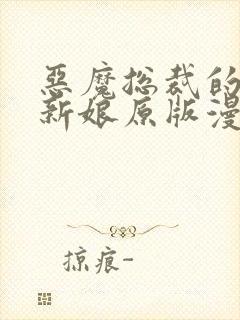 惡魔总裁的
新娘原版漫
掠痕-